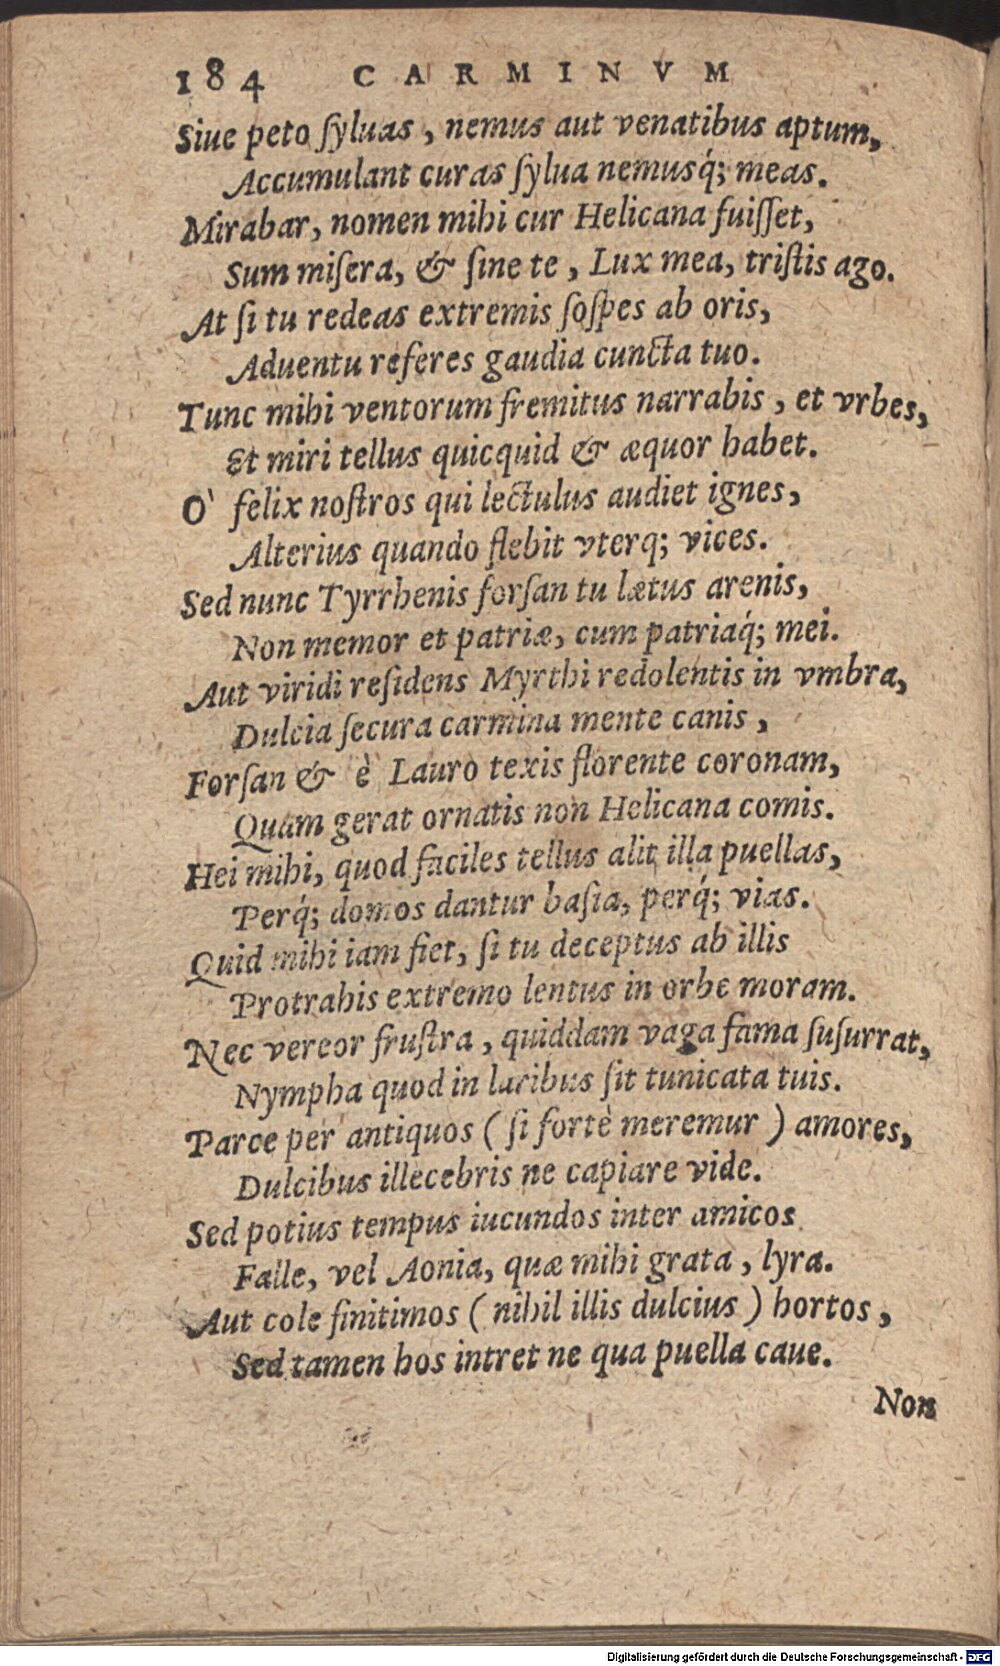 184 CARMINVM
Siue peto ſyluas, nemus aut venatibus aptum,
Accumulant curas ſylua nemusq́; meas.
Mirabar, nomen mihi cur Helicana fuiſſet,
Sum miſera, & ſine te, Lux mea, triſtis ago.
At ſi tu redeas extremis ſoſpes ab oris,
Aduentu referes gaudia cuncta tuo.
Tunc mihi ventorum fremitus narrabis, et vrbes,
Et miri tellus quicquid & æquor habet.
O' felix noſtros qui lectulus audiet ignes,
Alterius quando flebit vterq; vices.
Sed nunc Tyrrhenis forſan tu lætus arenis,
Non memor et patriæ, cum patriaq́; mei.
Aut viridi reſidens Myrthi redolentis in vmbra,
Dulcia ſecura carmina mente canis,
Forſan & è Lauro texis florente coronam,
Quam gerat ornatis non Helicana comis.
Hei mihi, quod faciles tellus alit illa puellas,
Perq́; domos dantur baſia, perq́; vias.
Quid mihi iam fiet, ſi tu deceptus ab illis
Protrahis extremo lentus in orbe moram.
Nec vereor fruſtra, quiddam vaga fama ſuſurrat,
Nympha quod in laribus ſit tunicata tuis.
Parce per antiquos (ſi fortè meremur) amores,
Dulcibus illecebris ne capiare vide.
Sed potius tempus iucundos inter amicos
Falle, vel Aonia, quæ mihi grata, lyra.
Aut cole finitimos (nihil illis dulcius) hortos,
Sed tamen hos intret ne qua puella caue.
Non
Digitalisierung gefördert durch die Deutsche Forschungsgemeinschaft - DFG